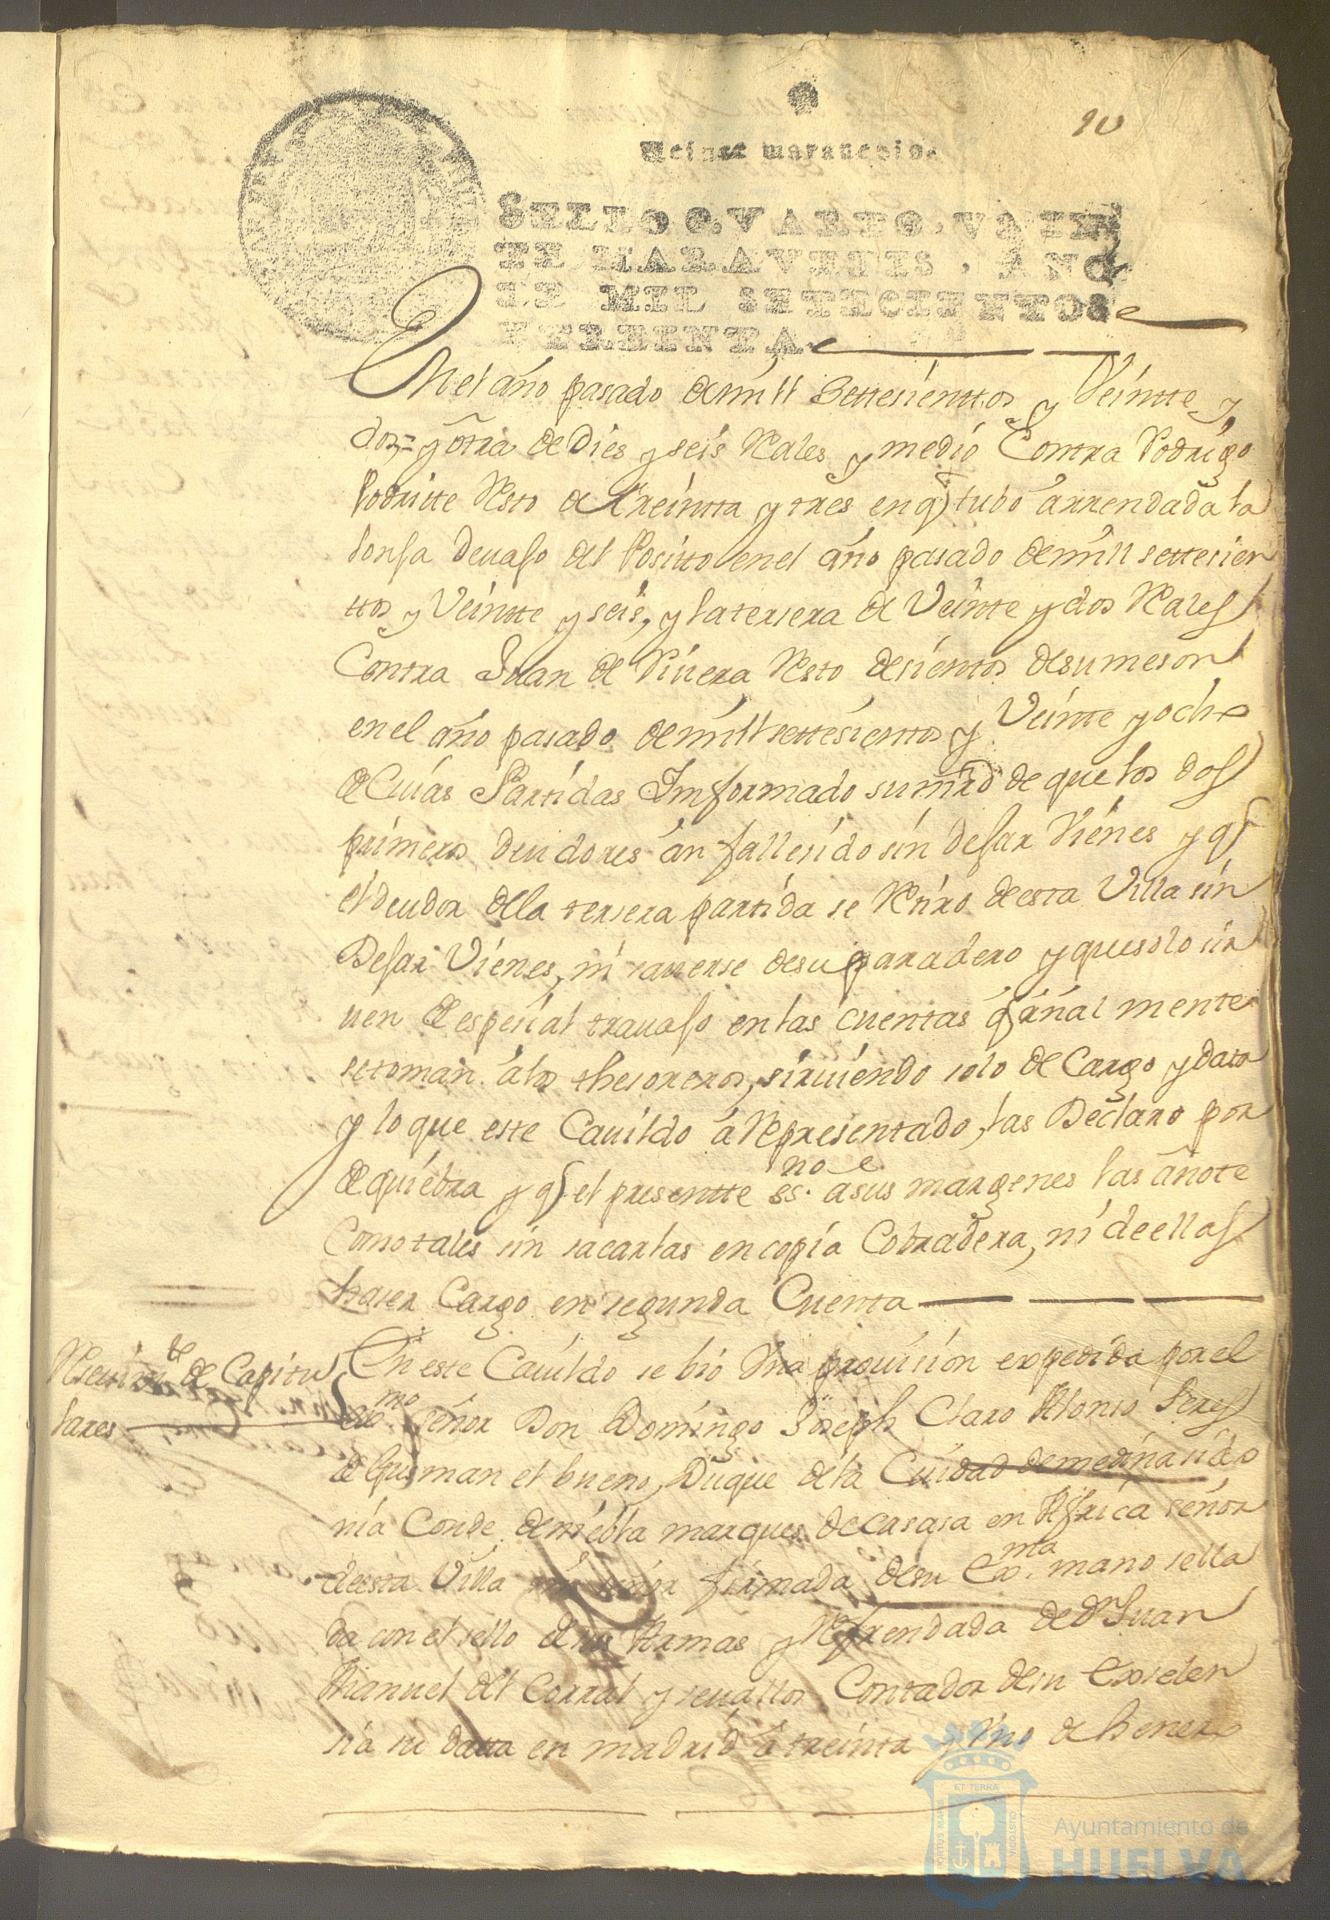 10
Veinte maravedis.
SELLO QVARTO, VEIN
TE MARAVEDIS, AÑO
DE MIL SETECIENTOS
Y TREINTA.
En el año pasado de mill settesienttos y Veintte y
dos,= y otra de Dies y seis Rales y medio Contra Rodrigo
resto de treintta y tres en q tubo arrendada la
lonja devajo del Positto en el año pasado de mill settesien
ttos y Veintte y seis, y la tersera de Veinte y dos Rales
Contra Juan de Rivera Resto de sientos de su meson
en el año pasado de mill settesientos y Veinte y ocho
de Cuias Partidas Imformado su mrd de que los dos
primeros deudores án fallesido sin dejar Vienes y q
el deudor de la tersera partida se Retiro de esta Villa sin
Dejar Vienes, ni saverse de su paradero y que solo sir
uen de espesial travajo en las cuentas q anal mente
se toman á los thesoreros, sirviendo solo de Cargo y data
y lo que este Cavildo á Representado, las Declaro por
de quiebra y q el presentte es.no a sus margenes las anote
Como tales sin sacarlas en copia Cobradera, ni de ellas
haser Cargo en segunda Cuenta
de Capitu
lares
En este Cavildo se bio Vna provision expedida por el
exmo señor Don Domingo Joseph Claro Alonso Peres
de Gusman el bueno, Duque de la Cuidad de medina sido
nia Conde de niebla marques de casasa en Africa señor
de esta Villa mi señor firmada de su Exma. mano sella
da con el sello de sus Armas y Refrendada de Dn Juan
Manuel del Corral y sevallos Contador de su Exselen
sia su datta en madrid á treinta y Vno de henero
Ayuntamiento de
HUELVA